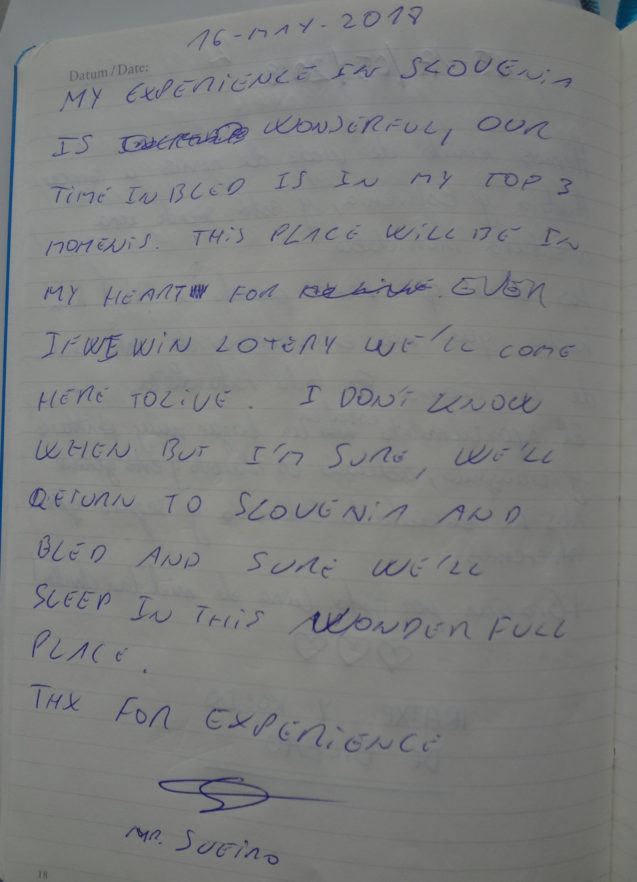 16-MAY-2017
Datum/Date:
MY EXPERIENCE IN SLOVENIA
IS WONDERFUL, OUR
TIME IN BLED IS IN MY TOP 3
MOMENTS. THIS PLACE WILL BE IN
MY HEART FOR EVER
IF WE WIN LOTERY WE'LL COME
HERE TO LIVE. I DON'T KNOW
WHEN BUT I'M SURE, WE'LL
RETURN TO SLOVENIA AND
BLED AND SURE WE'LL
SLEEP IN THIS WONDERFULL
PLACE.
THX FOR EXPERIENCE
MR. SUEIRO
18